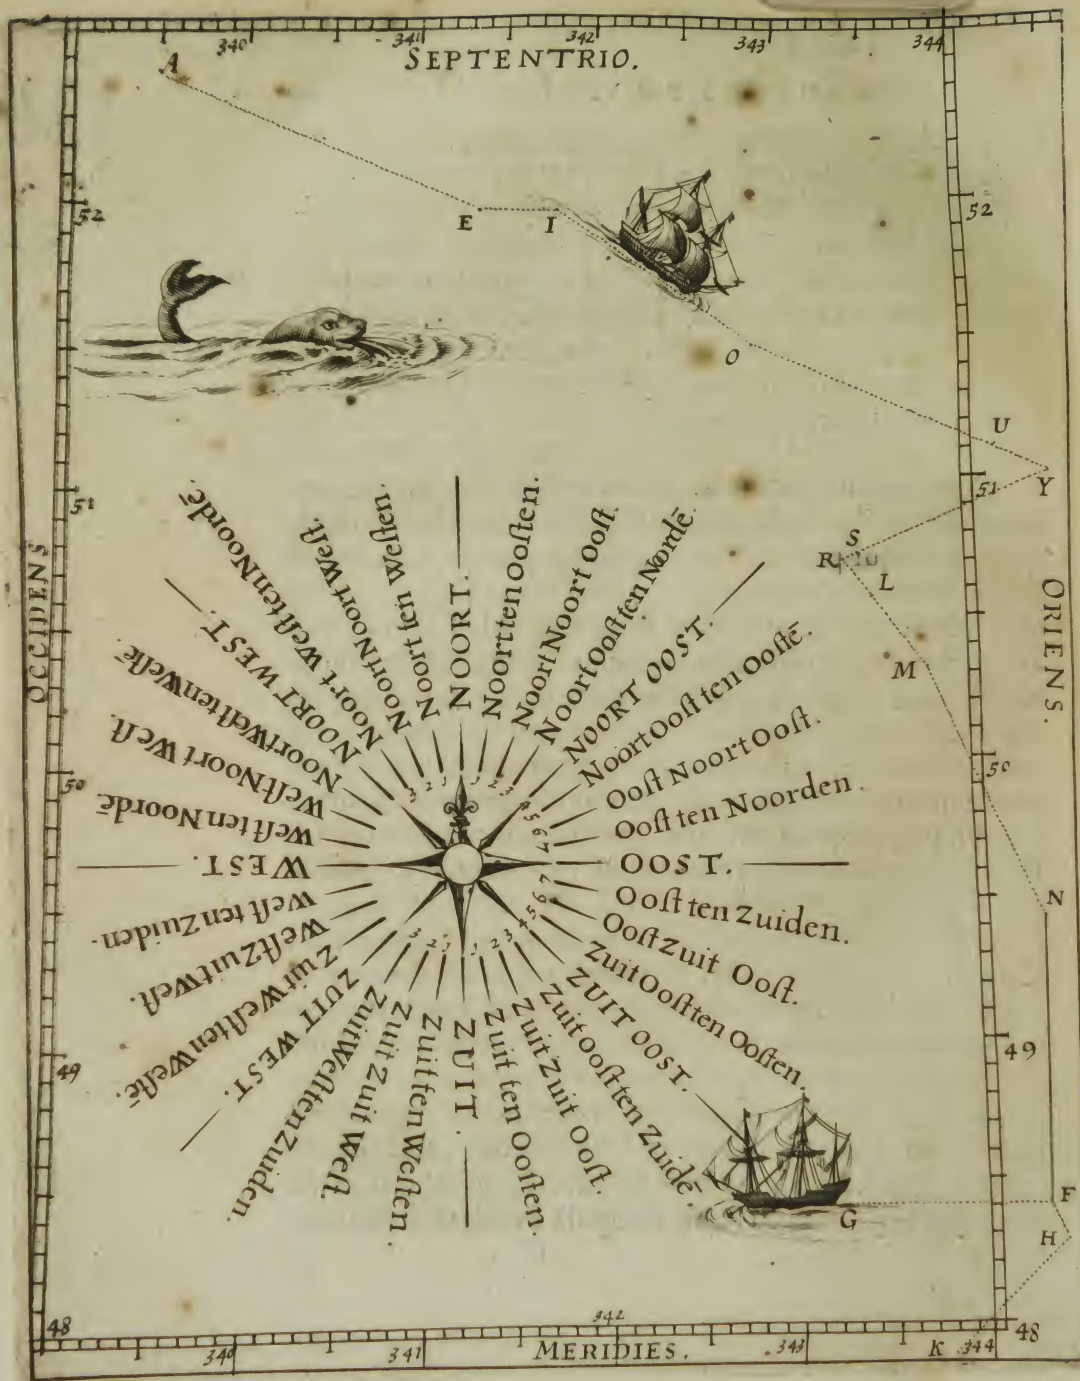 340 341 342 343 344
SEPTENTRIO.
A
52 E I 52
O
U
51 51 Y
S
R L
M
OCCIDENS
ORIENS.
NOORT.
Noort ten Ooſten.
Noort Noort Ooſt.
Noort Ooſt ten Nordē.
NOORT OOST.
Noort Ooſt ten Ooſtē.
Ooſt Noort Ooſt.
Ooſt ten Noorden.
OOST.
Ooſt ten Zuiden.
Ooſt Zuit Ooſt.
Zuit Ooſt ten Ooſten.
ZUIT OOST.
Zuit Ooſt ten Zuidē.
Zuit Zuit Ooſt.
Zuit ten Ooſten.
ZUIT.
Zuit ten Weſten.
Zuit Zuit Weſt.
Zuit Weſt ten Zuiden.
ZUIT WEST.
Zuit Weſt ten Weſtē.
Weſt Zuit Weſt.
Weſt ten Zuiden.
WEST.
Weſt ten Noordē.
Weſt Noort Weſt.
Noort Weſt ten Weſtē.
NOORT WEST.
Noort Weſt ten Noordē.
Noort Noort Weſt.
Noort ten Weſten.
3 2 1 1 2 3 4 5 6 7
7 6 5 4 3 2 1 1 2 3
50 50
N
49 49
G F
H
48 342 48
340 341 MERIDIES. 343 K 344